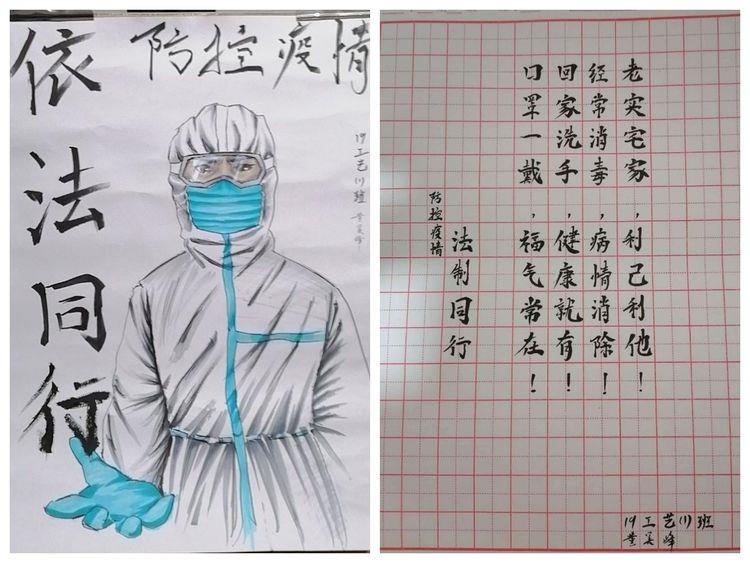 防控疫情
依法同行
19工艺(1)班
黄美峰
老实宅家，利己利他！
经常消毒，病情消除！
回家洗手，健康就有！
口罩一戴，福气常在！
法制同行
防控疫情
19工艺(1)班
黄美峰